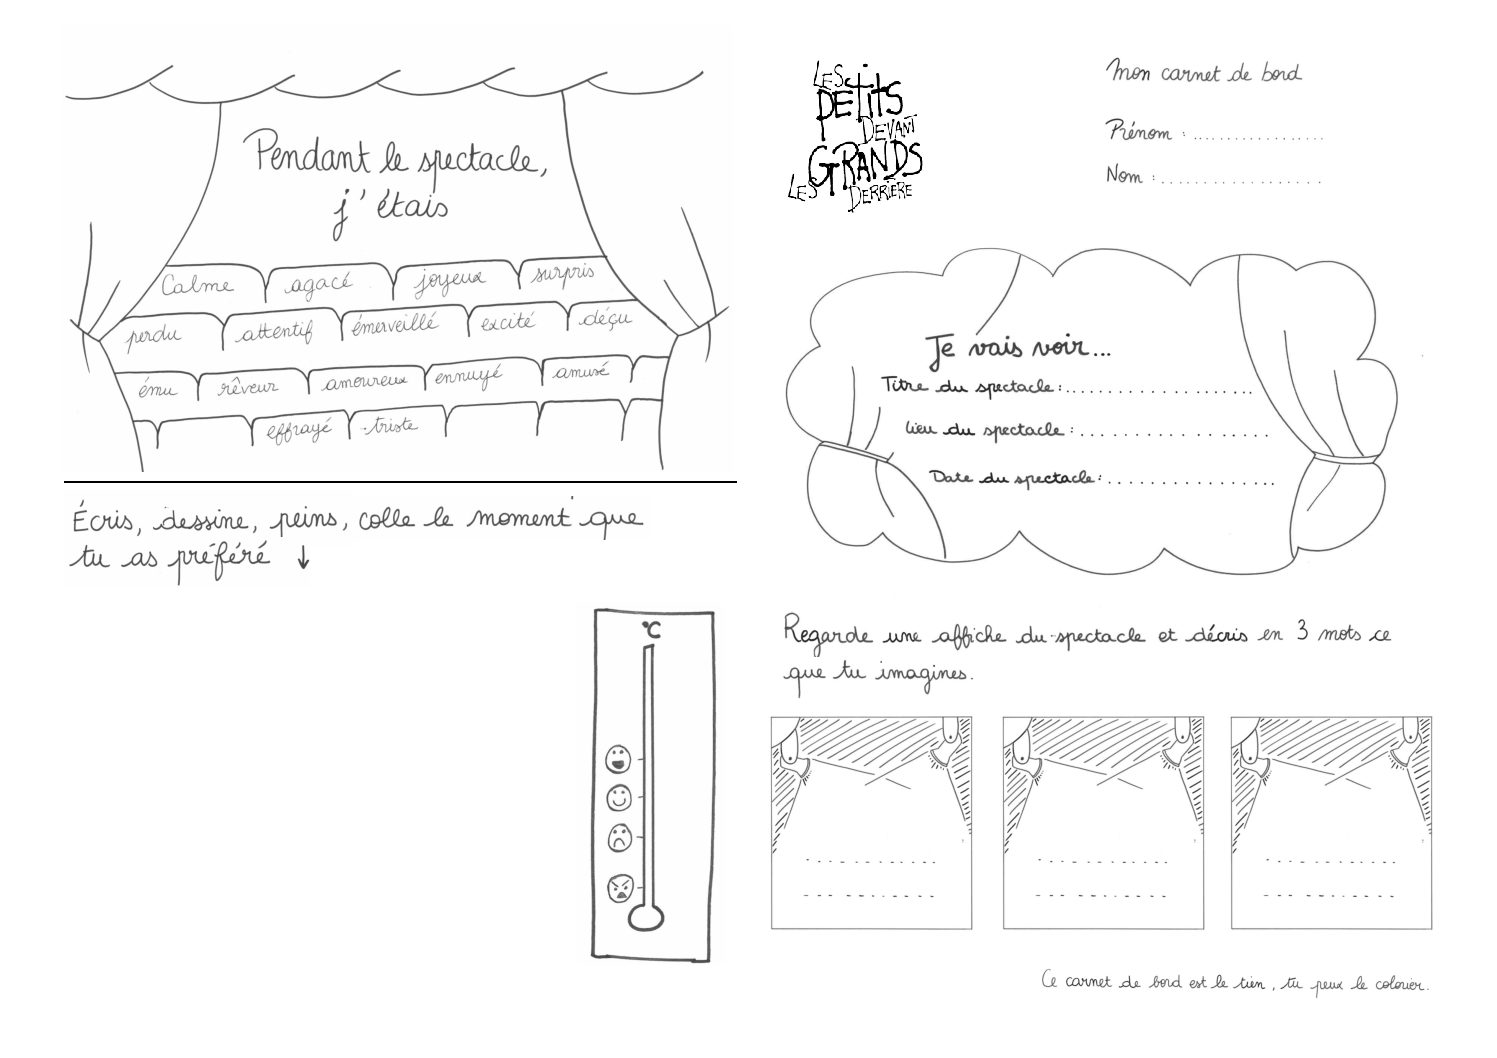 Pendant le spectacle,
j'étais
Calme agacé joyeux surpris
perdu attentif émerveillé excité déçu
ému rêveur amoureux ennuyé amusé
effrayé triste
Écris, dessine, peins, colle le moment que
tu as préféré ↓
°C
LES
PETITS
DEVANT
GRANDS
LES DERRIÈRE
Mon carnet de bord
Prénom : ....................
Nom : ....................
Je vais voir...
Titre du spectacle : ....................
Lieu du spectacle : ....................
Date du spectacle : ....................
Regarde une affiche du spectacle et décris en 3 mots ce
que tu imagines.
Ce carnet de bord est le tien, tu peux le colorier.